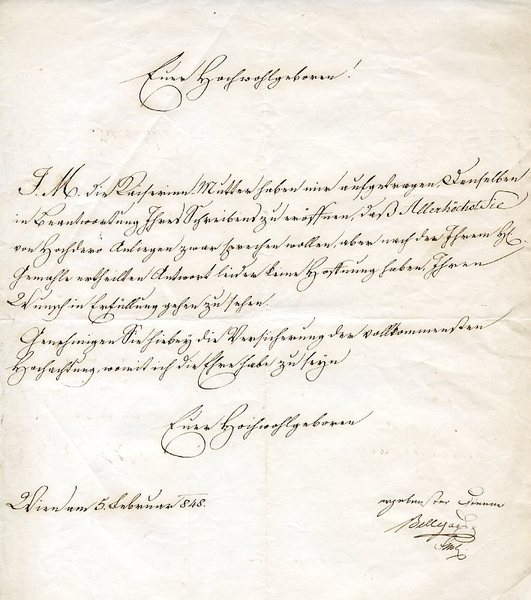 Euer Hochwohlgeboren!
I. M. die Kaiserinn Mutter haben mir aufgetragen, Denselben
in Beantwortung Ihres Schreibens zu eröffnen, daß Allerhöchstdie
von Hochdero Anliegen zwar sprechen wollen, aber nach der Ihrem H.
Gemahle ertheilten Antwort leider keine Hoffnung haben, Ihren
Wunsch in Erfüllung gehen zu sehen.
Genehmigen Sie hiebey die Versicherung der vollkommensten
Hochachtung, womit ich die Ehre habe zu seyn
Euer Hochwohlgeboren
Wien am 5. Februar 848.
ergebenster Diener
Bellegarde